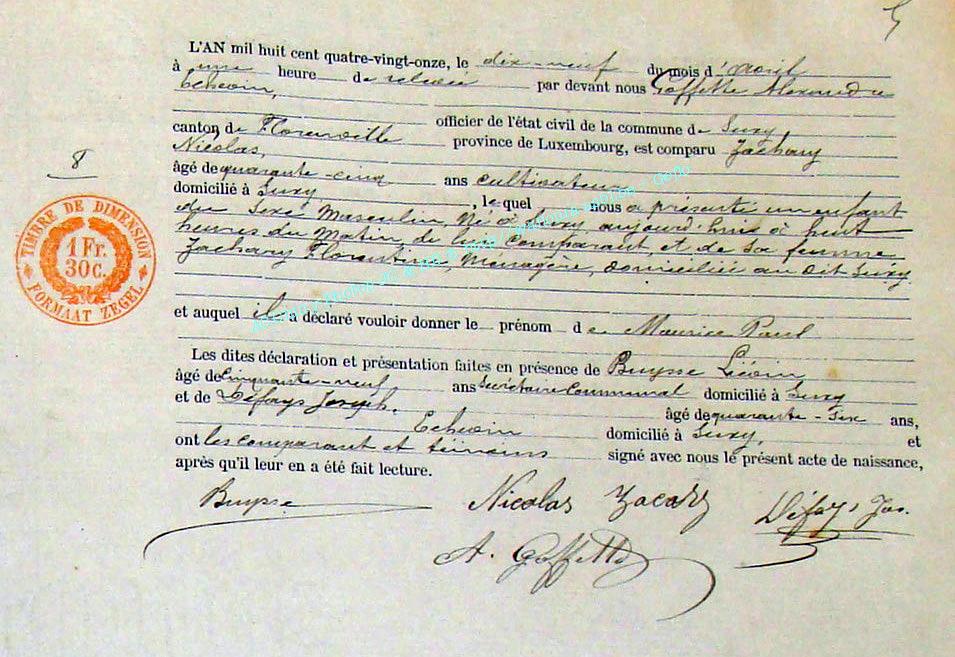 5
L'AN mil huit cent quatre-vingt-onze, le dix-neuf du mois d'avril
à une heure de relevée par devant nous Goffette Alexandre
Echevin,
officier de l'état civil de la commune de Suxy
canton de Florenville province de Luxembourg, est comparu Zachary
Nicolas,
8
âgé de quarante-cinq ans cultivateur
domicilié à Suxy, lequel nous a présenté un enfant
du Sexe Masculin, Né à Suxy aujourd'huis à huit
heures du Matin, de lui Comparant, et de Sa femme
Zachary Florentine, Ménagère, domiciliée au dit Suxy.
TIMBRE DE DIMENSION
1 Fr.
30 C.
FORMAAT ZEGEL
et auquel il a déclaré vouloir donner le prénom de Maurice Paul
Les dites déclaration et présentation faites en présence de Buysse Liévin
âgé de Cinquante-neuf ans Secrétaire Communal domicilié à Suxy
et de Défays Joseph. âgé de quarante-Six ans,
Echevin domicilié à Suxy, et
ont les comparant et témoins signé avec nous le présent acte de naissance,
après qu'il leur en a été fait lecture.
Buysse Nicolas Zacary Défays Jos.
A. Goffette